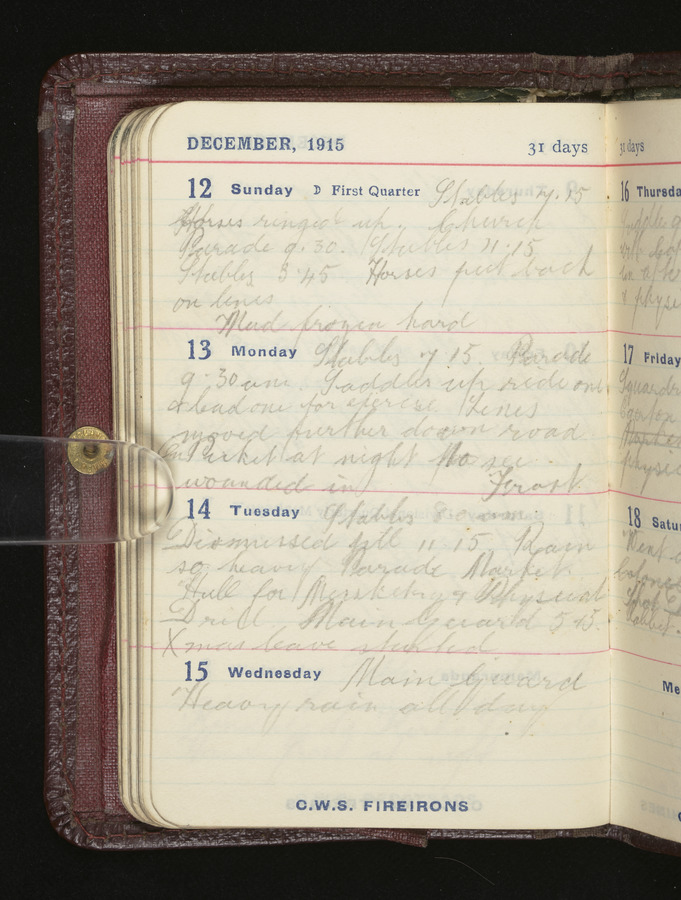 DECEMBER, 1915 31 days
12 Sunday First Quarter Stables 7.15
Horses ringed up. Church
Parade 9.30. Stables 11.15
Stables 3.45 Horses put back
on lines
Mud frozen hard
13 Monday Stables 7 15. Parade
9.30 am. Saddles up ride one
& lead one for exercise Lines
moved further down road
at night to see
wounded in Frost
14 Tuesday Stables
Dismissed till 11 15. Rain
so heavy Parade Market
Hall for Musketry & Physical
Drill Main Guard 5.45.
Xmas leave started
15 Wednesday Main Guard
Heavy rain all day
C.W.S. FIREIRONS
31 days
16 Thursda
17 Friday
18 Satu
Went
Me